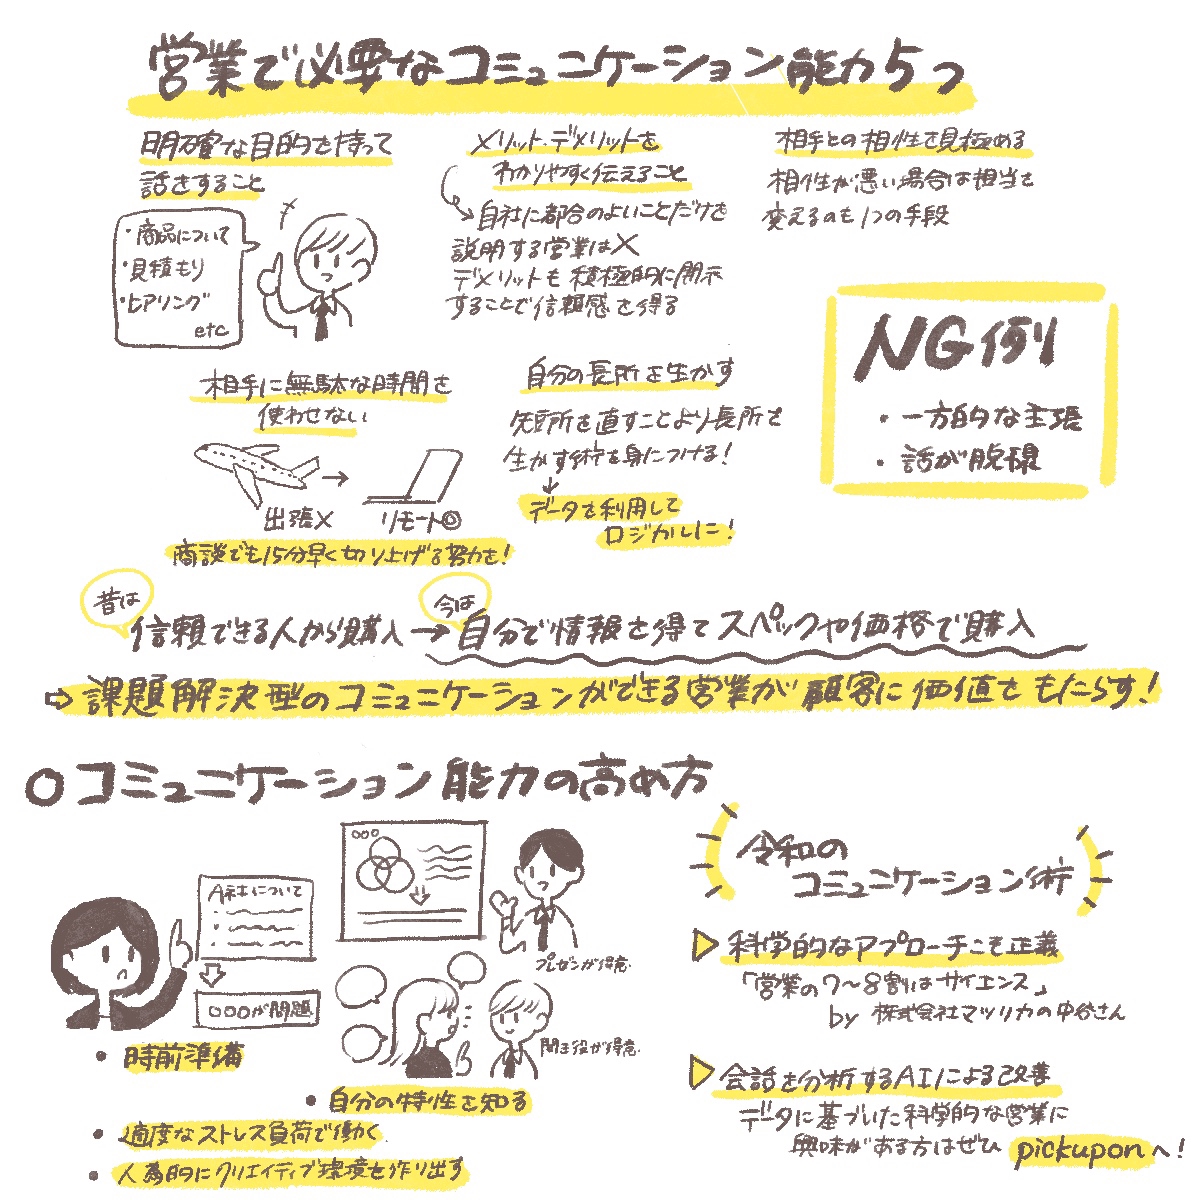 営業で必要なコミュニケーション能力5つ
明確な目的を持って
話をすること
・商品について
・見積もり
・ヒアリング
etc
メリット・デメリットを
わかりやすく伝えること
自社に都合のよいことだけを
説明する営業は×
デメリットも積極的に開示
することで信頼感を得る
相手との相性を見極める
相性が悪い場合は担当を
変えるのも1つの手段
相手に無駄な時間を
使わせない
→
出張× リモート◎
商談でも15分早く切り上げる努力を!
自分の長所を生かす
短所を直すことより長所を
生かす術を身につける!
↓
データを利用して
ロジカルに!
NG例
・一方的な主張
・話が脱線
昔は
信頼できる人から購入→
今は
自分で情報を得てスペックや価格で購入
⇨課題解決型のコミュニケーションができる営業が顧客に価値をもたらす!
○コミュニケーション能力の高め方
A社について
○○○が問題
・時前準備
○○○
プレゼンが得意.
聞き役が得意.
・自分の特性を知る
・適度なストレス負荷で働く
・人為的にクリエイティブ環境を作り出す
令和の
コミュニケーション術
▷科学的なアプローチこそ正義
「営業の7〜8割はサイエンス」
by 株式会社マツリカの中谷さん
▷会話を分析するAIによる改善
データに基づいた科学的な営業に
興味がある方はぜひ pickuponへ!